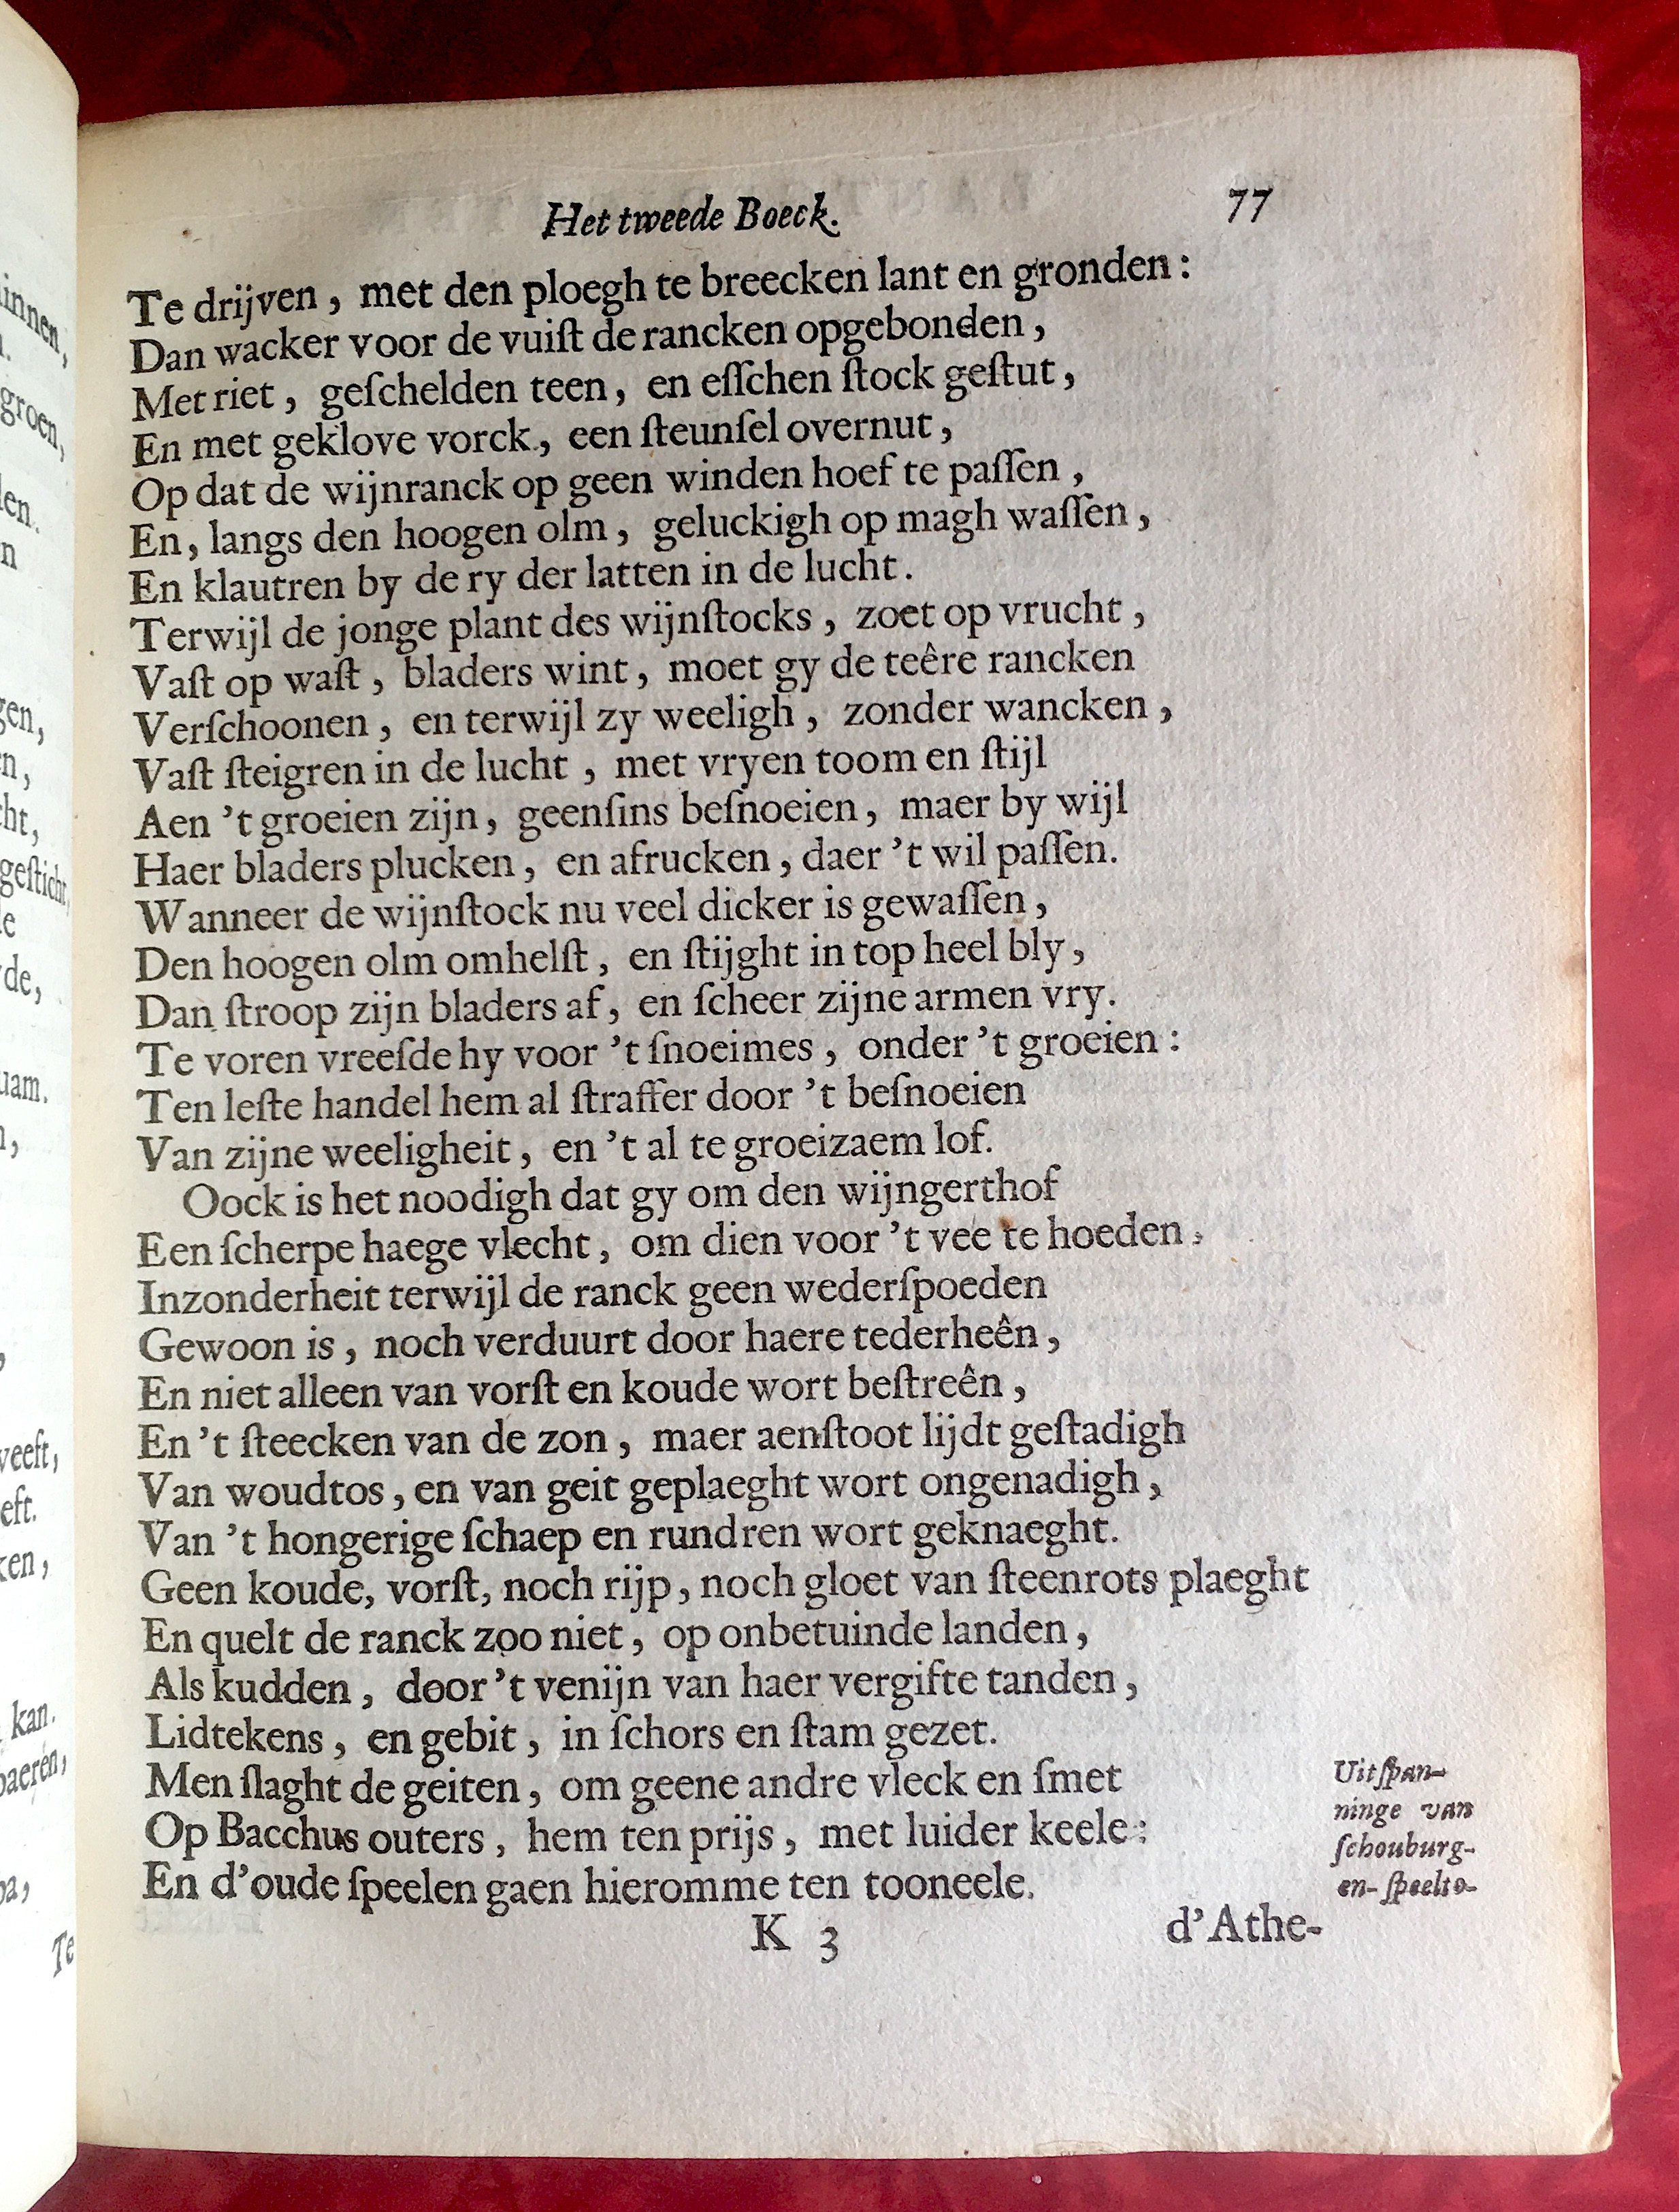 Het tweede Boeck. 77
Te drijven, met den ploegh te breecken lant en gronden:
Dan wacker voor de vuiſt de rancken opgebonden,
Met riet, geſchelden teen, en eſſchen ſtock geſtut,
En met geklove vorck, een ſteunſel overnut,
Op dat de wijnranck op geen winden hoef te paſſen,
En, langs den hoogen olm, geluckigh op magh waſſen,
En klautren by de ry der latten in de lucht.
Terwijl de jonge plant des wijnſtocks, zoet op vrucht,
Vaſt op waſt, bladers wint, moet gy de teêre rancken
Verſchoonen, en terwijl zy weeligh, zonder wancken,
Vaſt ſteigren in de lucht, met vryen toom en ſtijl
Aen 't groeien zijn, geenſins beſnoeien, maer by wijl
Haer bladers plucken, en afrucken, daer 't wil paſſen.
Wanneer de wijnſtock nu veel dicker is gewaſſen,
Den hoogen olm omhelſt, en ſtijght in top heel bly,
Dan ſtroop zijn bladers af, en ſcheer zijne armen vry.
Te voren vreeſde hy voor 't ſnoeimes, onder 't groeien:
Ten leſte handel hem al ſtraffer door 't beſnoeien
Van zijne weeligheit, en 't al te groeizaem lof.
Oock is het noodigh dat gy om den wijngerthof
Een ſcherpe haege vlecht, om dien voor 't vee te hoeden,
Inzonderheit terwijl de ranck geen wederſpoeden
Gewoon is, noch verduurt door haere tederheên,
En niet alleen van vorſt en koude wort beſtreên,
En 't ſteecken van de zon, maer aenſtoot lijdt geſtadigh
Van woudtos, en van geit geplaeght wort ongenadigh,
Van 't hongerige ſchaep en rundren wort geknaeght.
Geen koude, vorſt, noch rijp, noch gloet van ſteenrots plaeght
En quelt de ranck zoo niet, op onbetuinde landen,
Als kudden, door 't venijn van haer vergifte tanden,
Lidtekens, en gebit, in ſchors en ſtam gezet.
Men ſlaght de geiten, om geene andre vleck en ſmet
Op Bacchus outers, hem ten prijs, met luider keele:
En d'oude ſpeelen gaen hieromme ten tooneele.
Uitſpan-
ninge van
ſchouburg-
en- ſpeelto-
K 3 d'Athe-